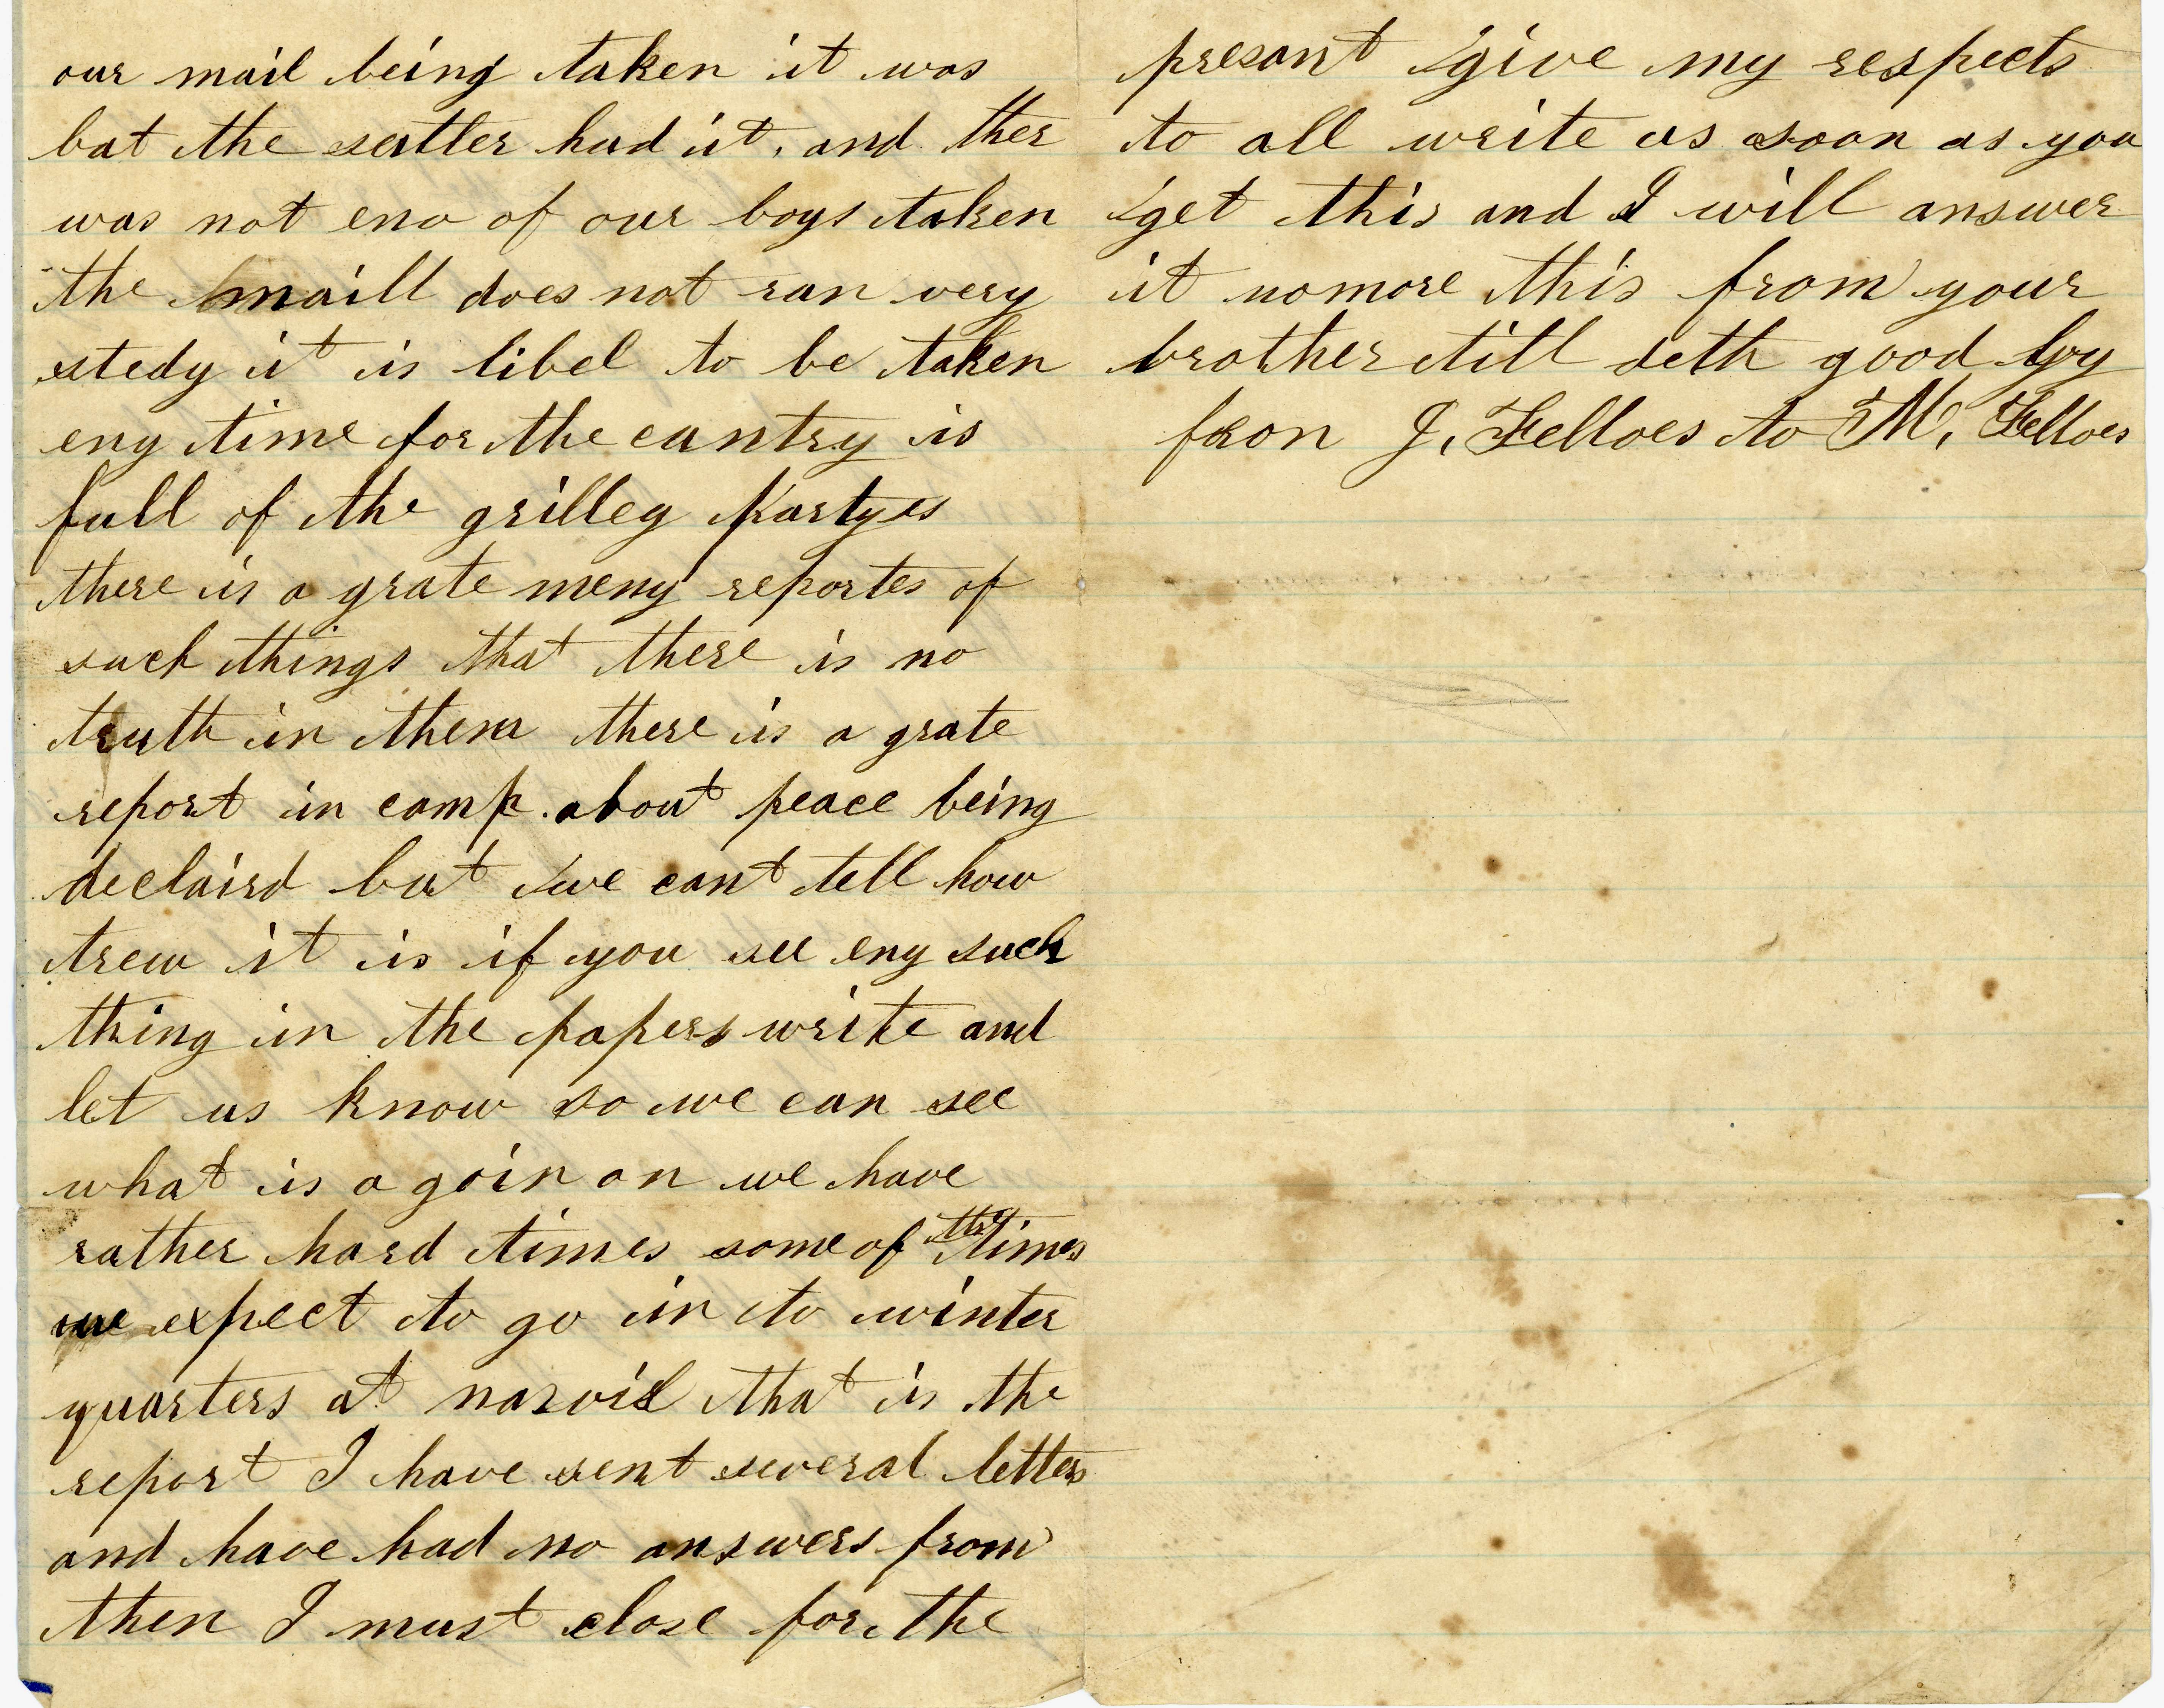 our mail being taken it was
but the sutler had it, and ther
was not eno of our boys taken
the maill does not run very
stedy it is libel to be taken
eny time for the cuntry is
full of the grilley partyes
there is a grate meny reportes of
such things that there is no
truth in them there is a grate
report in camp about peace being
declaird but we cant tell how
trew it is if you see eny such
thing in the papers write and
let us know so we can see
what is a goin on we have
rather hard times some of the times
we expect to go in to winter
quarters at narvil that is the
report I have sent several letters
and have had no answers from
then I must close for the
presant give my respects
to all write as soon as you
get this and I will answer
it nomore this from your
brother till deth good by
fron J. Felloes to M. Felloes